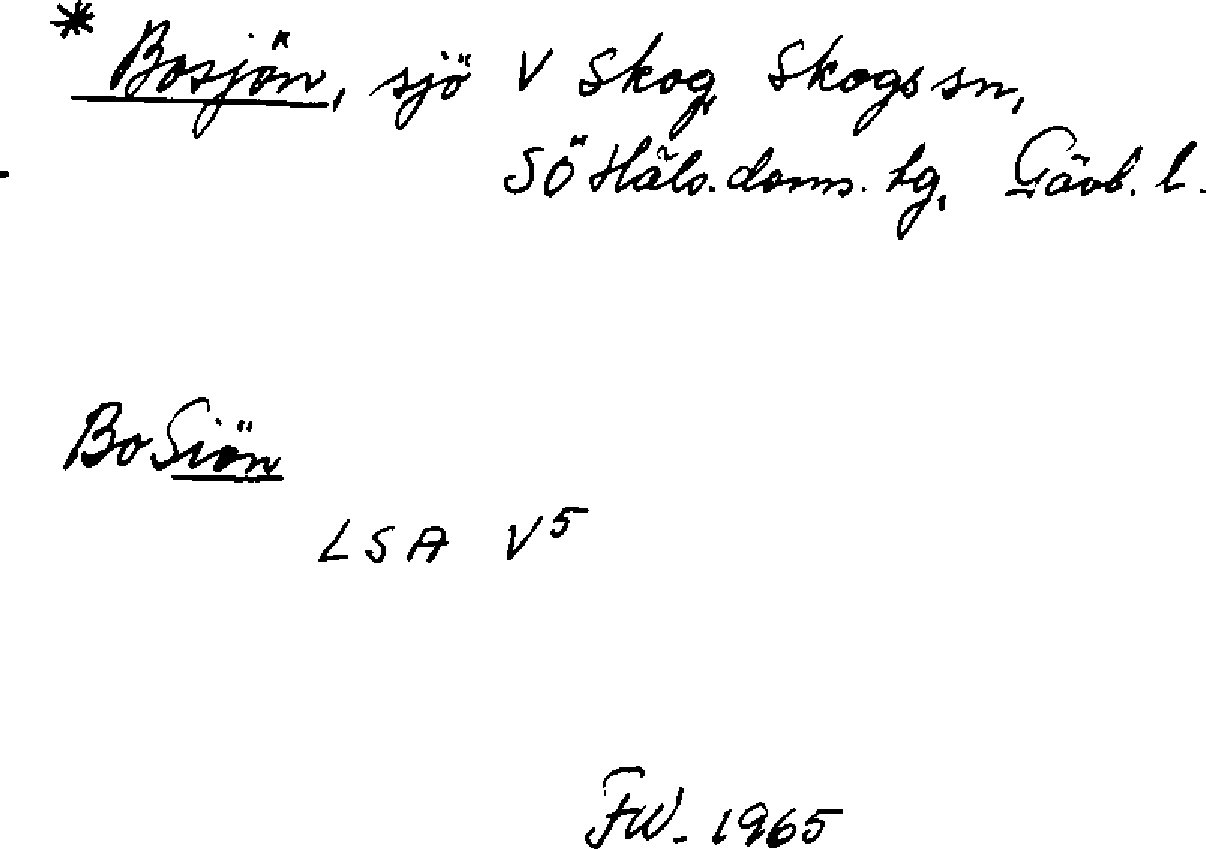 * Bosjön, sjö V Skog, Skogs sn,
SÖ Häls. doms. tg, Gävb. l.
BoSiön
LSA V5
FW. 1965